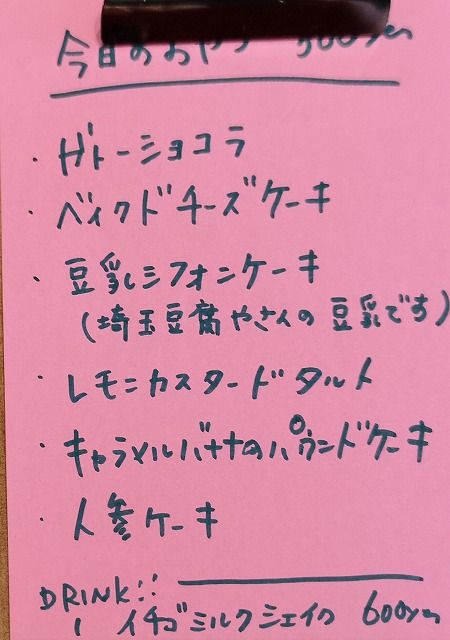 今日のおやつ 500yen
・ガトーショコラ
・ベイクドチーズケーキ
・豆乳シフォンケーキ
(埼玉豆腐やさんの豆乳です)
・レモンカスタードタルト
・キャラメルバナナのパウンドケーキ
・人参ケーキ
DRINK!!
イチゴミルクシェイク 600yen